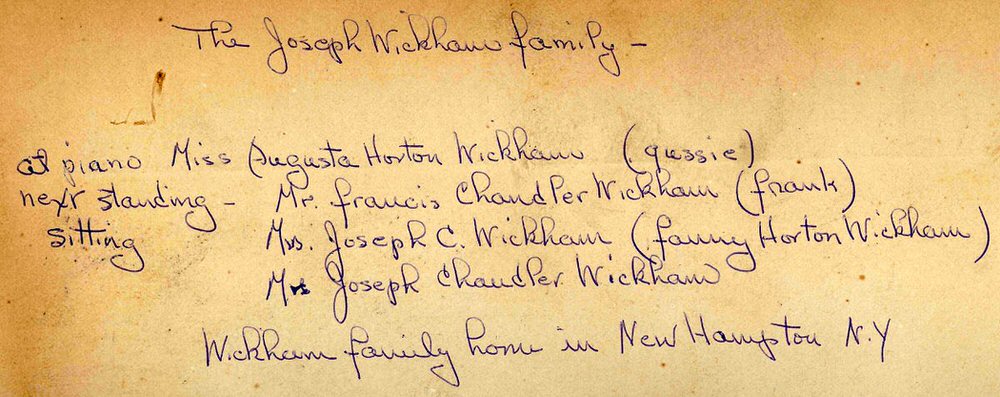 The Joseph Wickham family -
at piano Miss Augusta Horton Wickham (gussie)
next standing - Mr. francis Chandler Wickham (frank)
sitting Mrs. Joseph C. Wickham (fanny Horton Wickham)
Mr Joseph Chandler Wickham
Wickham family home in New Hampton N.Y